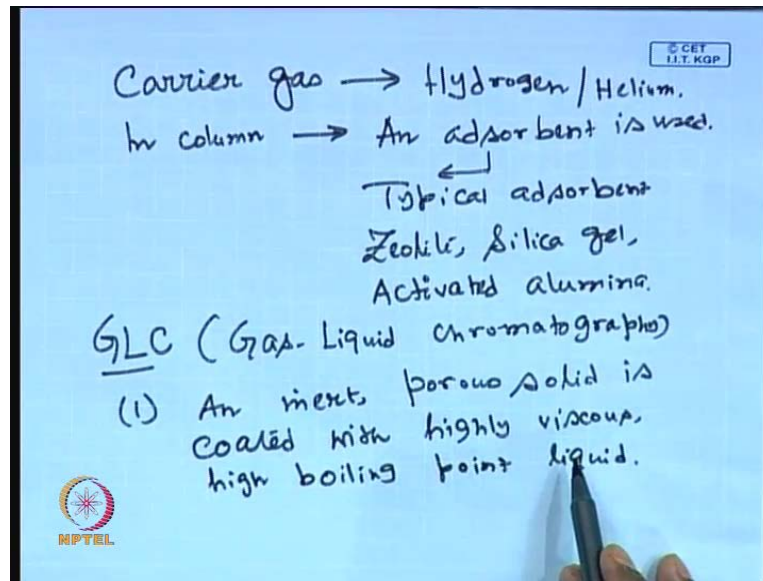 © CET
I.I.T. KGP
Carrier gas → Hydrogen / Helium.
In column → An adsorbent is used.
Typical adsorbent
Zeolite, Silica gel,
Activated alumina.
GLC (Gas-Liquid Chromatography)
(1) An inert, porous solid is
coated with highly viscous,
high boiling point liquid.
NPTEL